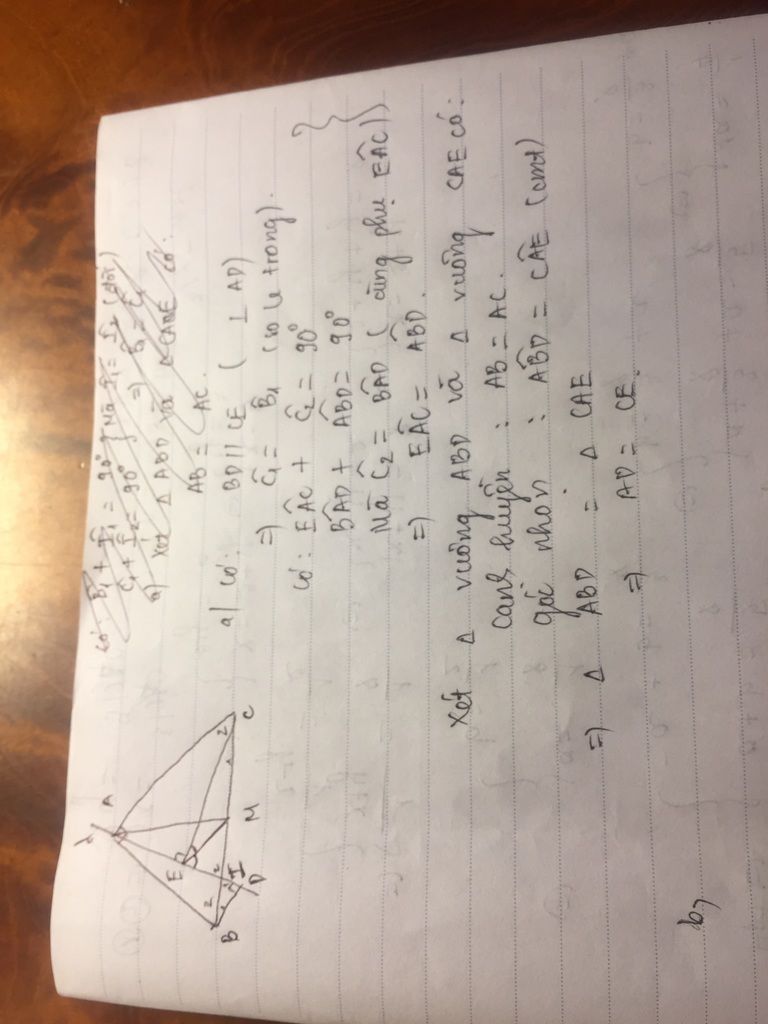 Có: B̂₁ + Î₁ = 90°
Ĉ₁ + Î₂ = 90° } Mà Î₁ = Î₂ (đđ)
=) B̂₁ = Ĉ₁
a) Xét Δ ABD và Δ CAE có:
AB = AC.
a) Có: BD // CE ( ⊥ AD)
=) Ĉ₁ = B̂₁ (so le trong).
Có: EÂC + Ĉ₂ = 90°
BÂD + AB̂D = 90° }
Mà Ĉ₂ = BÂD ( cùng phụ EÂC) }
=) EÂC = AB̂D.
Xét Δ vuông ABD và Δ vuông CAE có:
cạnh huyền : AB = AC.
góc nhọn : AB̂D = CÂE (cmt)
=) Δ ABD = Δ CAE
=) AD = CE.
b,
d
A
B
C
D
E
I
M
1
2
1
2
1
2